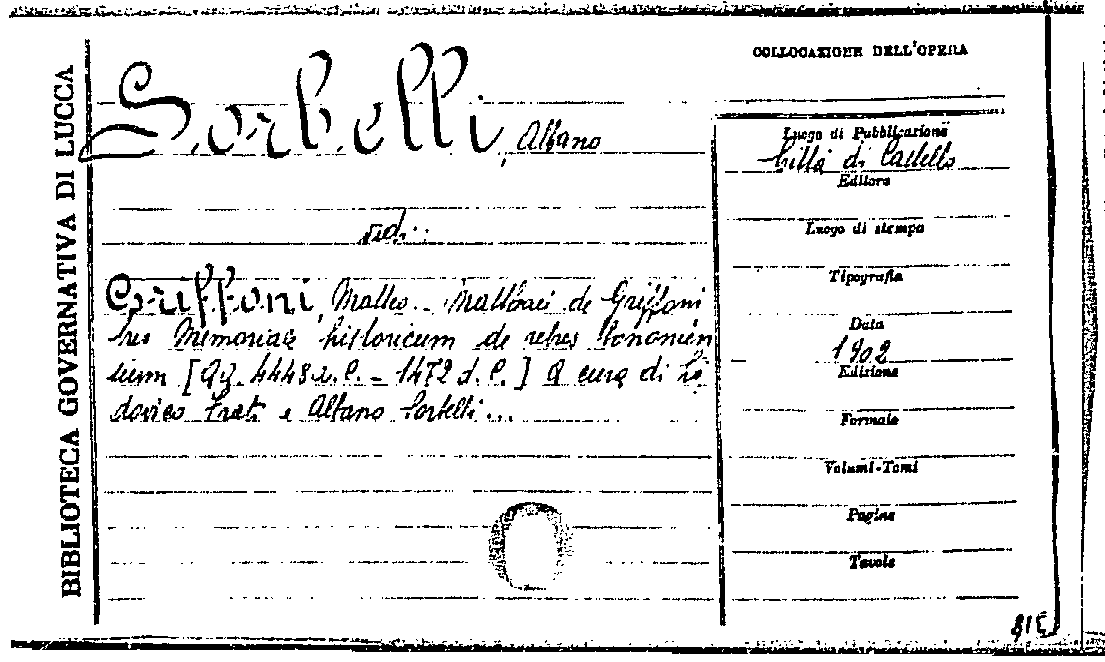 BIBLIOTECA GOVERNATIVA DI LUCCA
Sorbelli, Albano
ved.
Griffoni, Matteo. Matthaei de Griffoni
bus Memoriale historicum de rebus bononien
sium [aa. 4448 a. C. - 1472 d. C.] A cura di Lo
dovico Frati e Albano Sorbelli...
COLLOCAZIONE DELL'OPERA
Luogo di Pubblicazione
Città di Castello
Editore
Luogo di stampa
Tipografia
Data
1902
Edizione
Formato
Volumi-Tomi
Pagine
Tavole